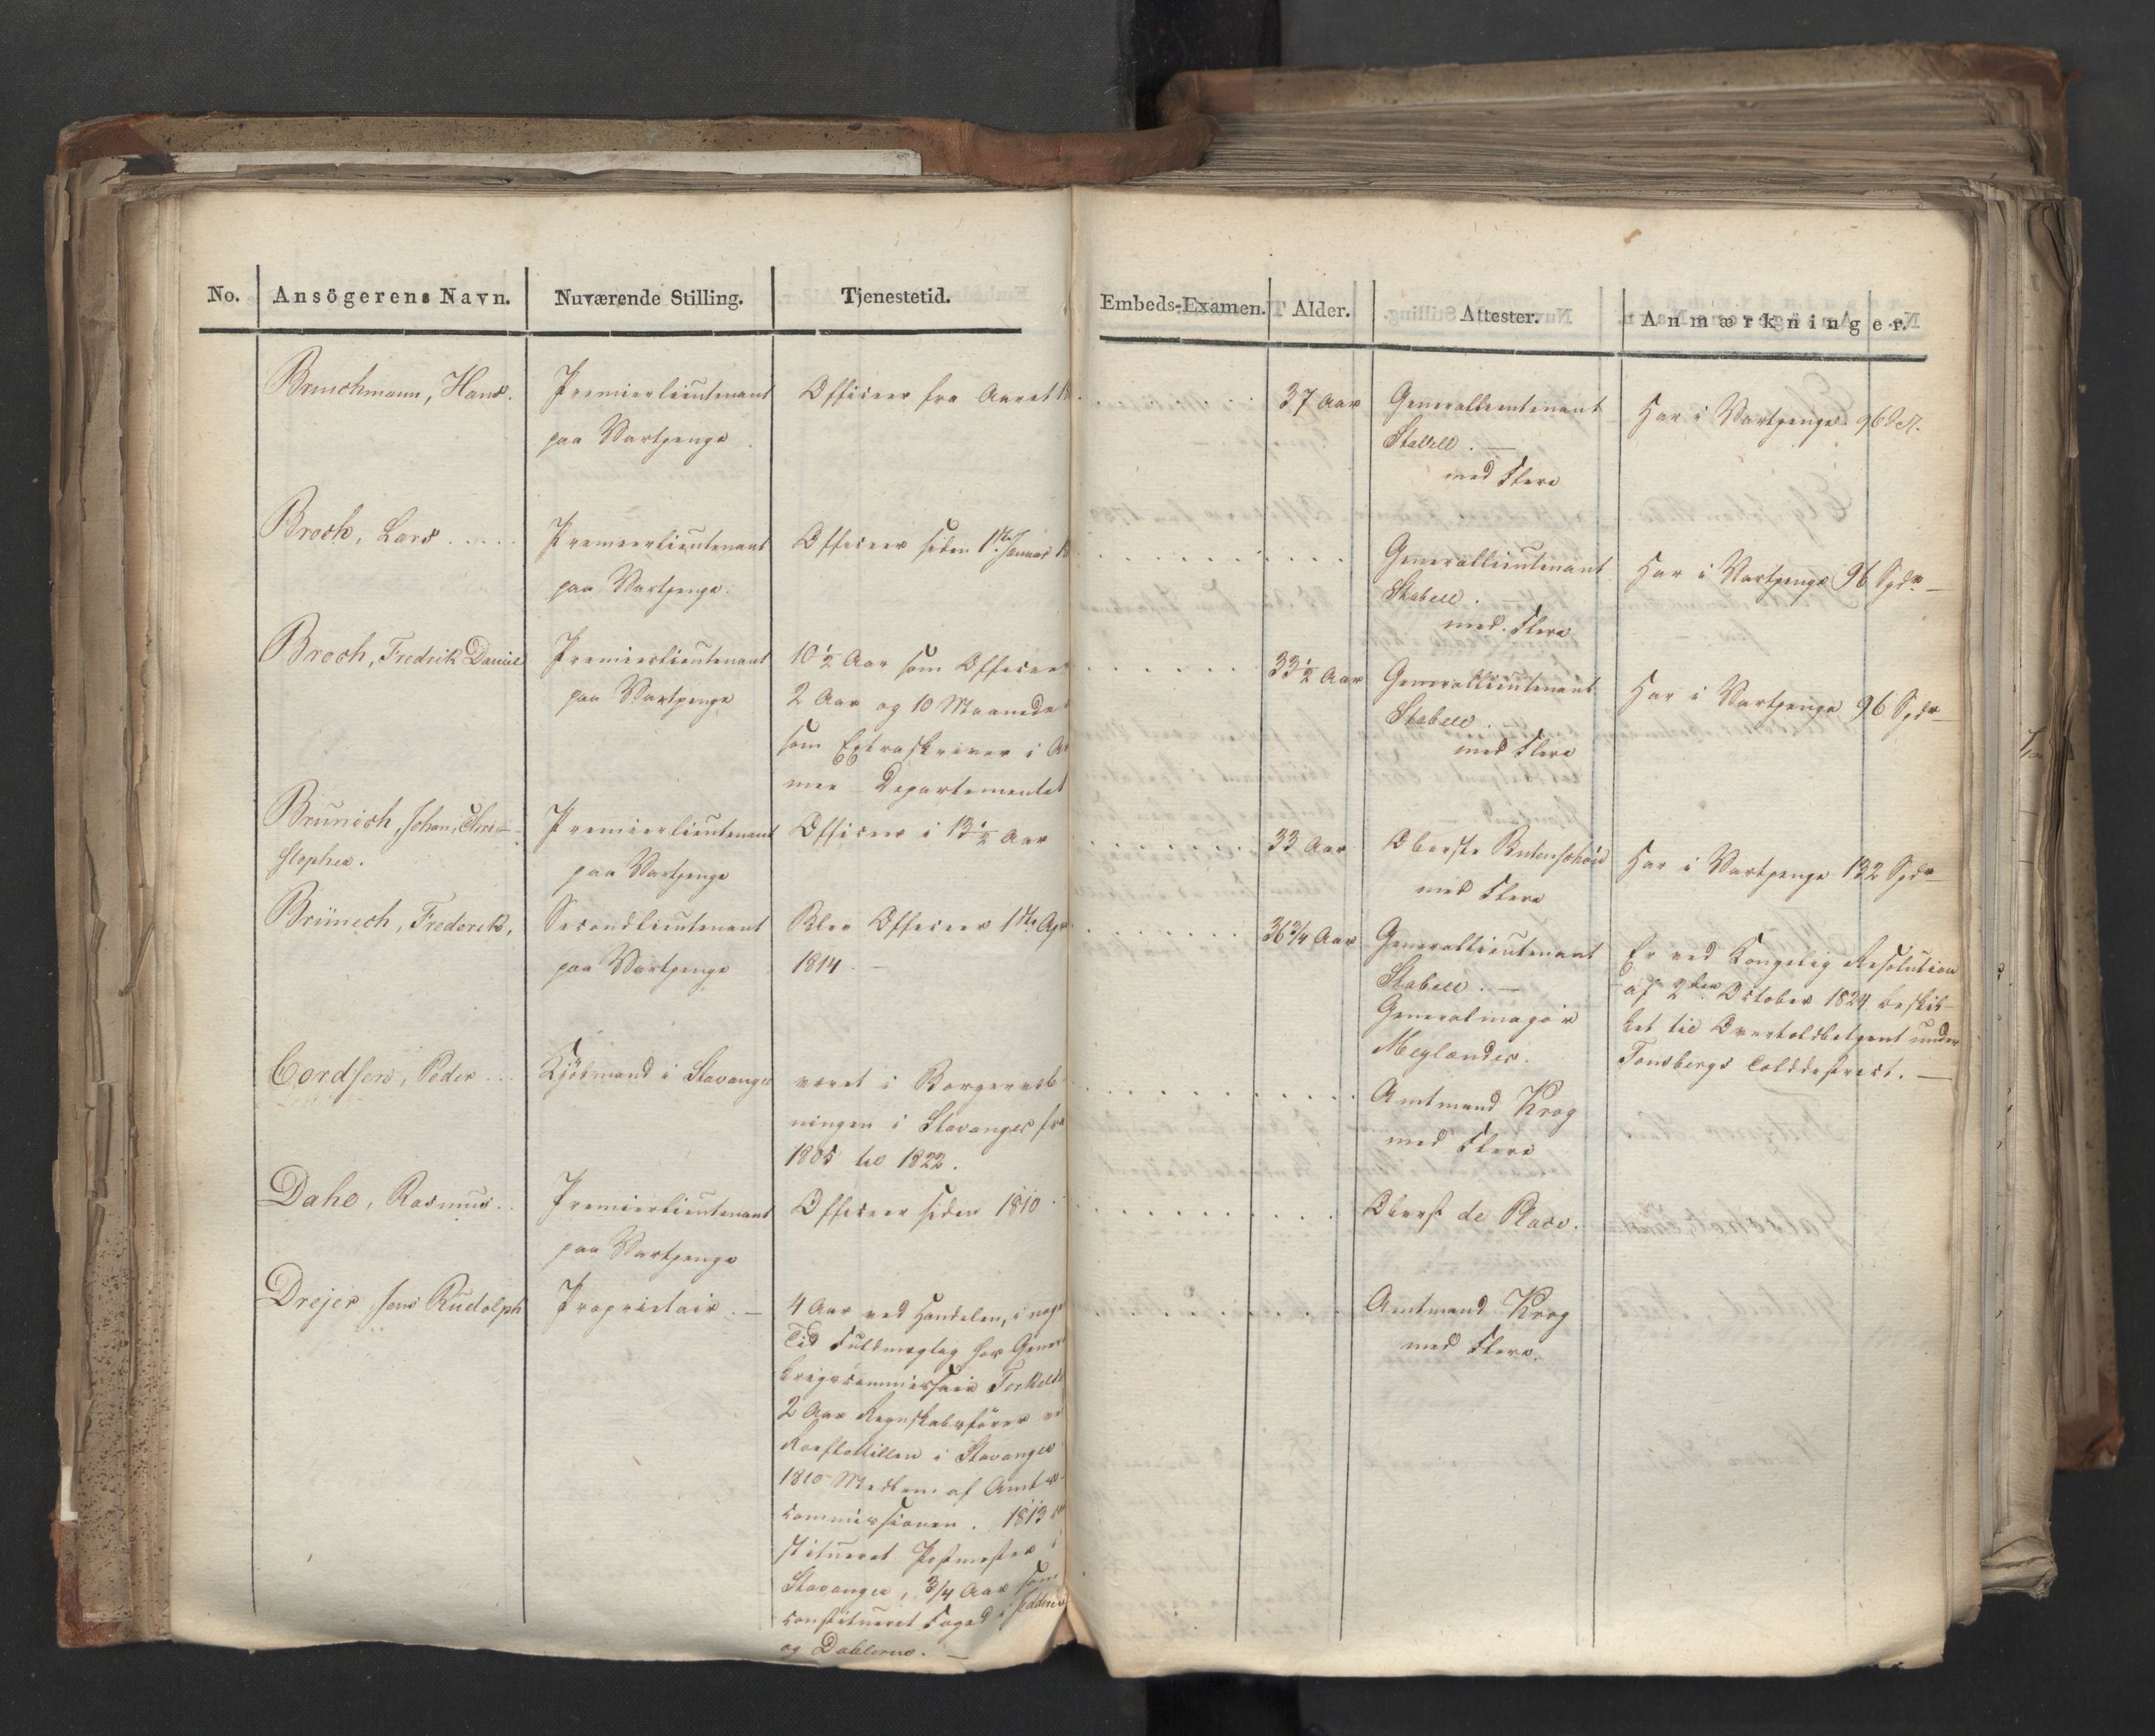 No. Ansögerens Navn. Nuværende Stilling. Tjenestetid. Embeds-Examen. Alder. Attester. Anmærkninger.
Bruschmann, Hans. Premierlieutenant Officeer fra Aaret 37 Aar Generallieutenant Har i Vartpenge 96
paa Vartpenge Stabell. —
med Flere
Broch, Lars ..... Premierlieutenant Officeer siden 1ste Januar Generallieutenant Har i Vartpenge 96 Spdr. —
paa Vartpenge. Stabell. —
med Flere
Broch, Fredrik Daniel Premierlieutenant 10½ Aar som Officeer 33½ Aar Generallieutenant Har i Vartpenge 96 Spdr —
paa Vartpenge 2 Aar og 10 Maaneder Stabell. —
som Extraskriver i Ar med Flere
mee-Departementet
Brünich, Johan Chri- Premierlieutenant Officeer i 13½ Aar 33 Aar Oberste Butenschøn Har i Vartpenge 132 Spdr —
stopher. paa Vartpenge med Flere
Brünech, Frederik, Secondlieutenant Blev Officeer 1ste Apr 36¾ Aar Generallieutenant Er ved Kongelig Resolution
paa Vartpenge 1814. — Stabell. — af 2den October 1824 beskik-
Generalmajor ket til Overtoldbetjent under
Meylænder. Tonsbergs Tolddistrict. —
Cordsen, Peder ... Kjöbmand i Stavanger været i Borgervæb- Amtmand Krog
ningen i Stavanger fra med Flere
1805 til 1822.
Dahl, Rasmus.. Premierlieutenant Officeer siden 1810 Oberst de Place.
paa Vartpenge
Drejer, Jens Rudolph Proprietair. — 4 Aar ved Handelen, i nogen Amtmand Krog
Tid Fuldmægtig hos General med Flere.
krigscommissair
2 Aar Regnskabsfører ved
Roeflottillen i Stavanger
1810 Medlem af Amts-
commissionen. 1813 con
stitueret Postmester i
Stavanger, 3/4 Aar som
constitueret Foged i Jedderen
og Dalerne. —